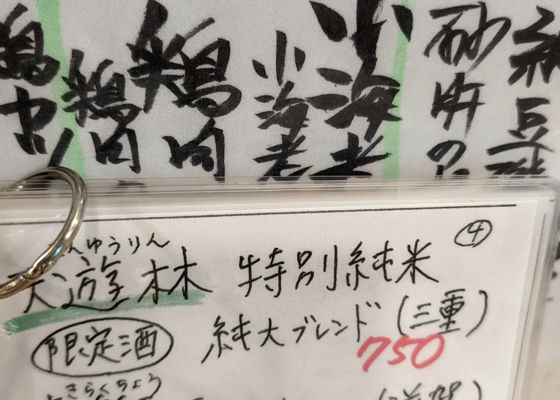 納豆
砂肝の
小海老
小海老
鶏肉
鶏肉
④
んゆうりん
天遊林 特別純米
限定酒 純大ブレンド (三重)
750
きらくちょう